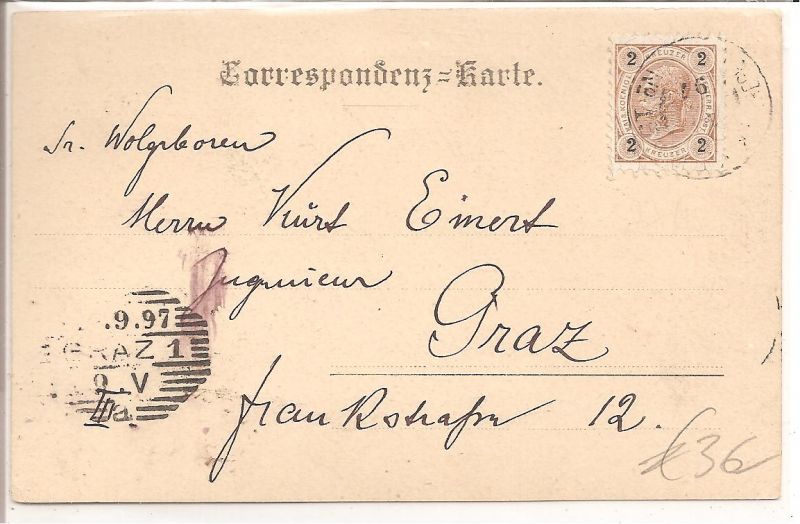 Correspondenz=Karte.
2 KREUZER 2
2 KREUZER 2
Sr. Wolgeboren
Herrn Kurt Einert
Ingenieur
Graz
Frankstraße 12.
.9.97
GRAZ 1
€36